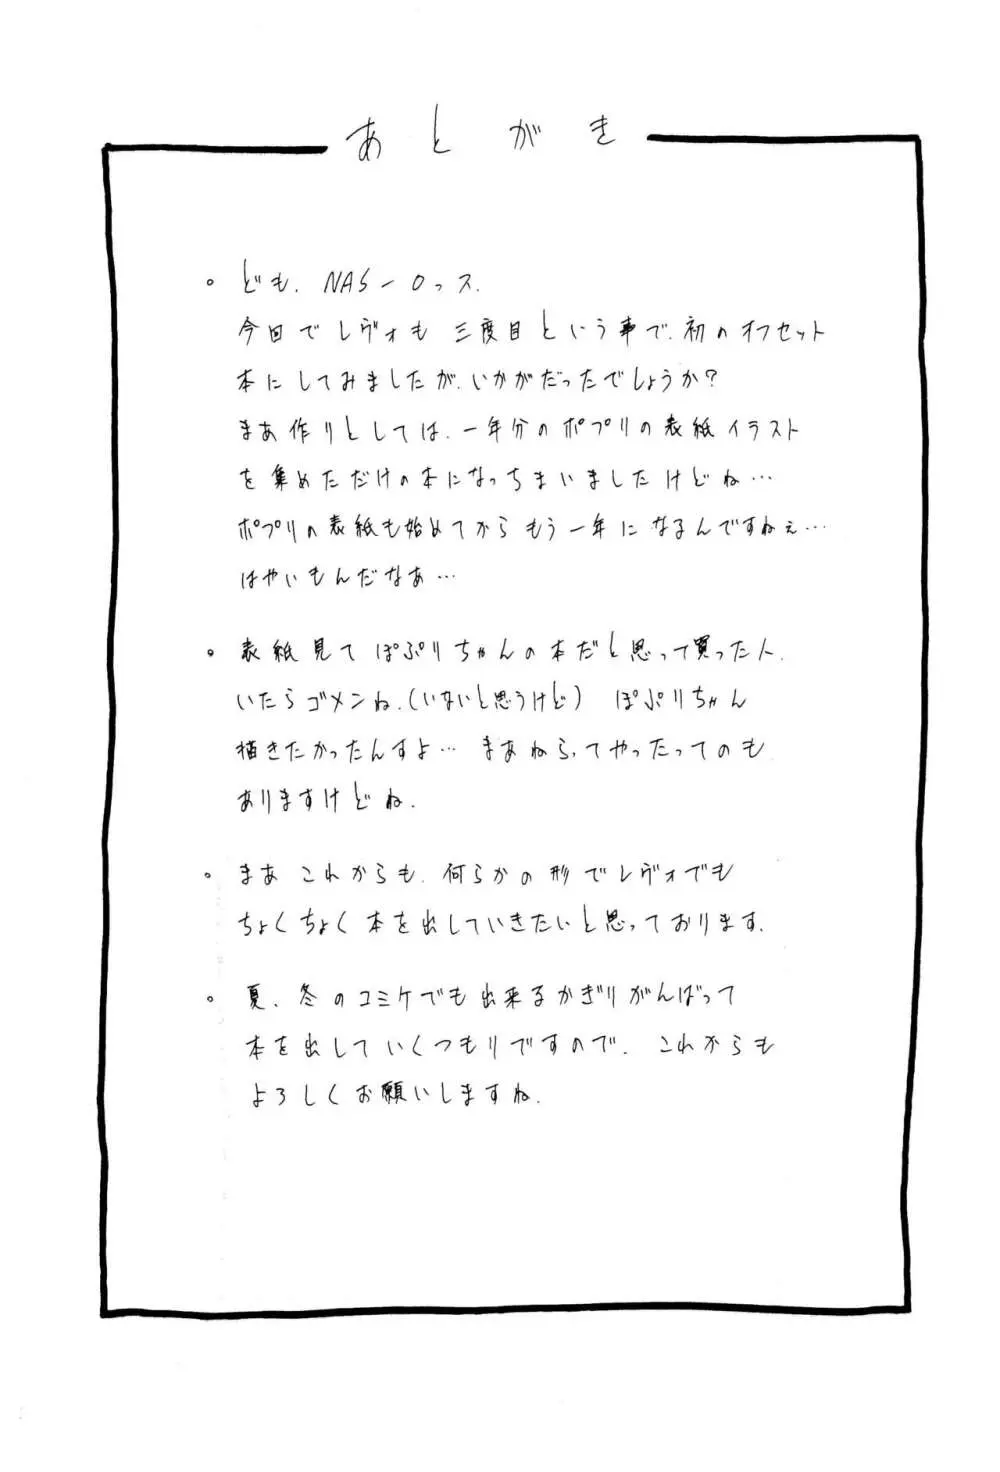 あとがき
。ども、NAS-Oっス。
今回でレヴォも三度目という事で、初のオフセット
本にしてみましたが、いかがだったでしょうか?
まあ作りとしては、一年分のポプリの表紙イラスト
を集めただけの本になっちまいましたけどね…
ポプリの表紙も始めてからもう一年になるんですねぇ…
はやいもんだなあ…
。表紙見てぽぷりちゃんの本だと思って買った人、
いたらゴメンね、(いないと思うけど) ぽぷりちゃん
描きたかったんすよ… まあねらってやったってのも
ありますけどね、
。まあ これからも、何らかの形でレヴォでも
ちょくちょく本を出していきたいと思っております、
。夏、冬のコミケでも出来るかぎりがんばって
本を出していくつもりですので、これからも
よろしくお願いしますね、